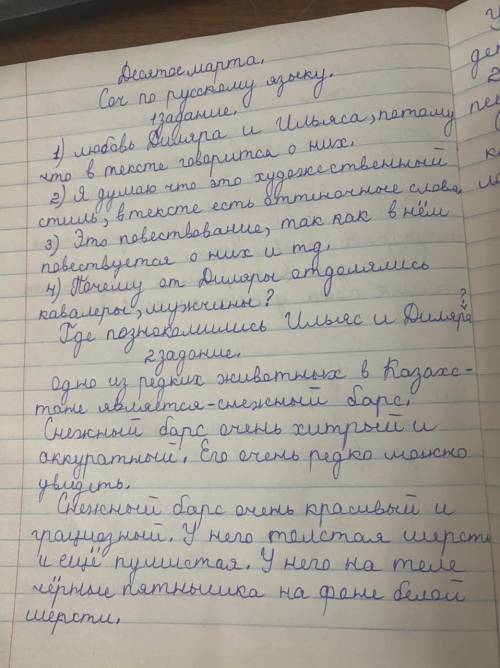 Десятое марта.
Соч по русскому языку.
1 задание.
1) любовь Диляра и Ильяса, потому
что в тексте говорится о них.
2) Я думаю что это художественный
стиль, в тексте есть оттиночные слова
3) Это повествование, так как в нём
повествуется о них и тд.
4) Почему от Диляры отдолялись
кавалеры, мужчины?
Где познакомились Ильяс и Диляра?
2 задание.
Одно из редких животных в Казахс-
тане является-снежный барс.
Снежный барс очень хитрый и
аккуратный. Его очень редко можно
увидеть.
Снежный барс очень красивый и
грациозный. У него толстая шерсть
и ещё пушистая. У него на теле
чёрные пятнышка на фоне белой
шерсти.